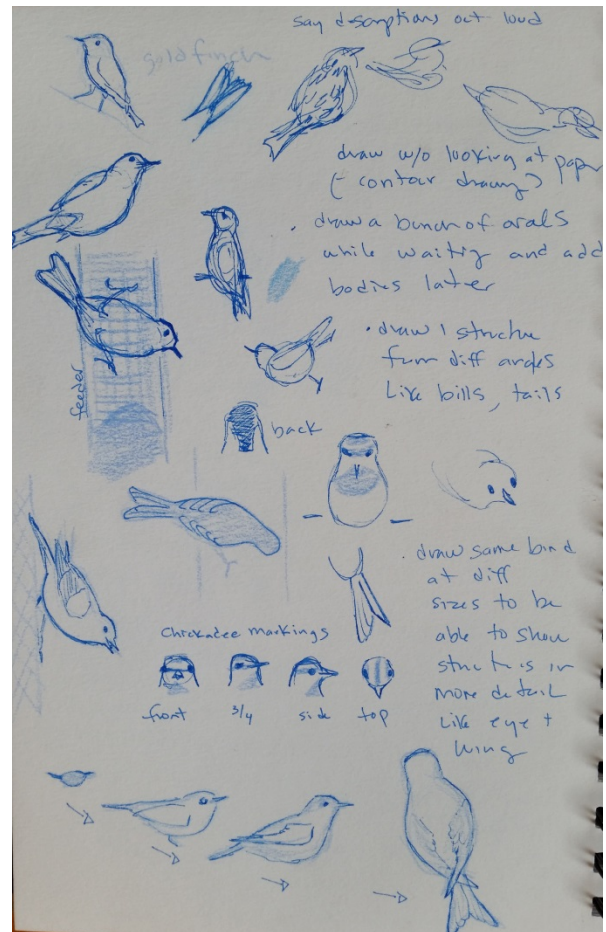 say descriptions out loud
goldfinch
draw w/o looking at paper
(- contour drawing)
. draw a bunch of ovals
while waiting and add
bodies later
. draw 1 structure
from diff angles
Like bills, tails
feeder
back
. draw same bird
at diff
sizes to be
able to show
structures in
more detail
like eye +
wing
Chickadee markings
front 3/4 side top